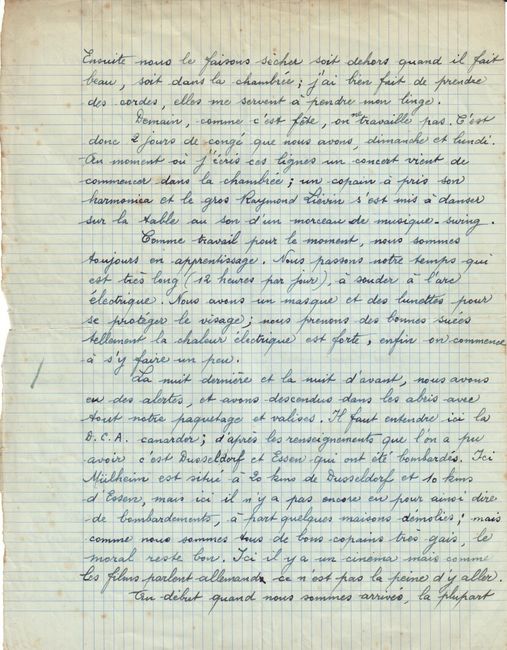 Ensuite nous le faisons sécher soit dehors quand il fait
beau, soit dans la chambrée ; j'ai bien fait de prendre
des cordes, elles me servent à pendre mon linge.
Demain, comme c'est fête, on ne travaille pas. C'est
donc 2 jours de congé que nous avons, dimanche et lundi.
Au moment où j'écris ces lignes un concert vient de
commencer dans la chambrée ; un copain à pris son
harmonica et le gros Raymond Liévin s'est mis à danser
sur la table au son d'un morceau de musique-swing.
Comme travail pour le moment, nous sommes
toujours en apprentissage. Nous passons notre temps qui
est très long (12 heures par jour), à souder à l'arc
électrique. Nous avons un masque et des lunettes pour
se protéger le visage ; nous prenons des bonnes suées
tellement la chaleur électrique est forte, enfin on commence
à s'y faire un peu.
La nuit dernière et la nuit d'avant, nous avons
eu des alertes, et avons descendus dans les abris avec
tout notre paquetage et valises. Il faut entendre ici la
D.C.A. canarder ; d'après les renseignements que l'on a pu
avoir c'est Dusseldorf et Essen qui ont été bombardés. Ici
Mülheim est situé à 20 kms de Dusseldorf et 10 kms
d'Essen, mais ici il n'y a pas encore eu pour ainsi dire
de bombardements, à part quelques maisons démolies ; mais
comme nous sommes tous de bons copains très gais, le
moral reste bon. Ici il y a un cinéma mais comme
les films parlent allemand, ce n'est pas la peine d'y aller.
Au début quand nous sommes arrivés, la plupart